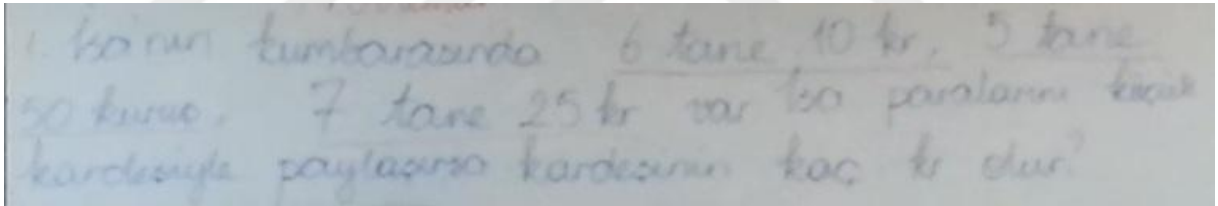 1. İsa'nın kumbarasında 6 tane 10 kr, 5 tane
50 kuruş, 7 tane 25 kr var İsa paralarını küçük
kardeşiyle paylaşırsa kardeşinin kaç kr olur?